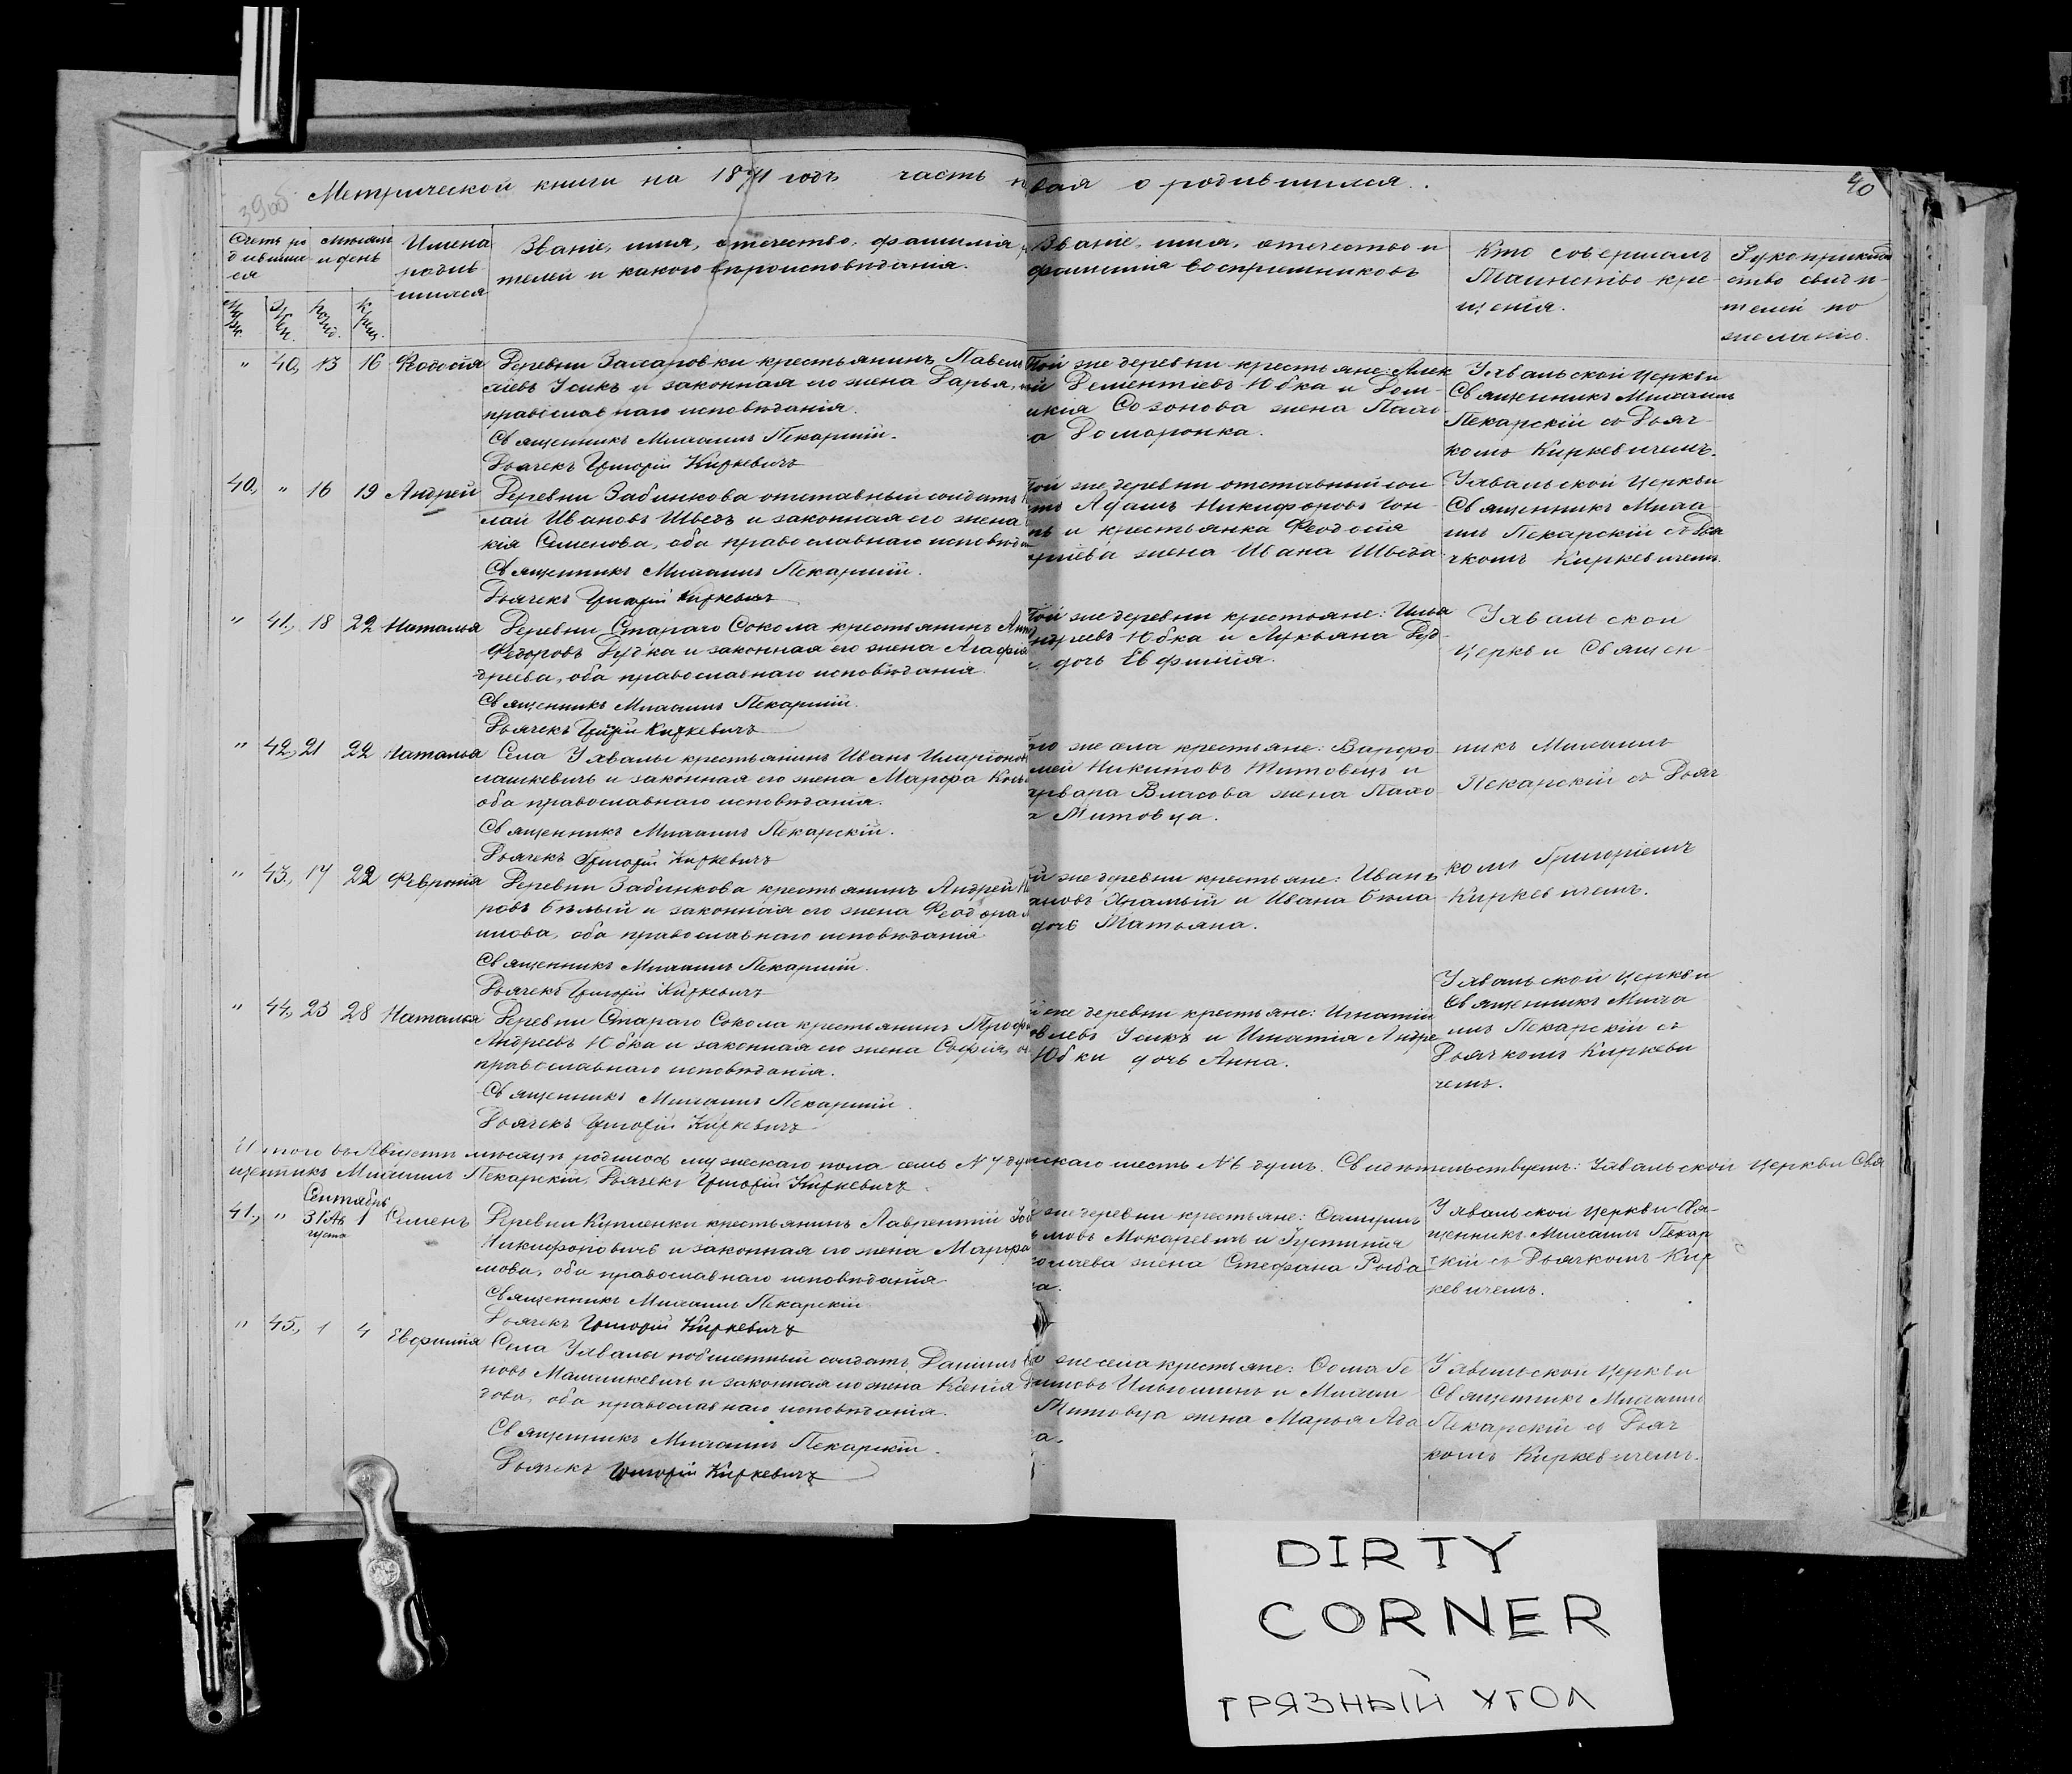 Метрической книги на 1871 годъ часть
вая о родившихся.
40
39об
Счетъ ро
дивших
ся
мѣсяцъ
и день
Имена
родив
шихся
Званіе, имя, отчество, фамилія
телей и какого вѣроисповѣданія.
Званіе, имя, отчество и
фамилія воспріемниковъ
Кто совершалъ
Таинство кре
щенія.
Рукоприклад
ство свидѣ-
телей по
желанію.
" 40, 13 16 Ѳеодосія
Деревни Заларовки крестьянинъ Павелъ
сѣевъ Усикъ и законная его жена Дарья,
православнаго исповѣданія.
Священникъ Михаилъ Пекарскій.
Дьячекъ Григорій Киркевичъ
Той же деревни крестьяне: Алек
ѣй Дементіевъ Юбка и Дом-
никія Созонова жена Пахо
а Домаронка.
Улвальской Церкви
Священникъ Михаилъ
Пекарскій съ Дьяч-
комъ Киркевичемъ.
40, " 16 19 Андрей
Деревни Забинкова отставный солдатъ
лай Ивановъ Шведъ и законная его жена
кія Семенова, оба православнаго исповѣда
Священникъ Михаилъ Пекарскій.
Дьячекъ Григорій Киркевичъ
Той же деревни отставный сол
тъ Адамъ Никифоровъ Гон-
ъ и крестьянка Ѳеодосія
ріева жена Ивана Шведа.
Улвальской Церкви
Священникъ Миха
илъ Пекарскій съ Дья
чкомъ Киркевичемъ.
" 41, 18 22 Наталья
Деревни Стараго Сокола крестьянинъ Ант
Ѳедоровъ Дудка и законная его жена Агафія
дреева, оба православнаго исповѣданія.
Священникъ Михаилъ Пекарскій.
Дьячекъ Григорій Киркевичъ
Той же деревни крестьяне: Илья
ндреевъ Юбка и Лукьяна Дуд-
дочь Евфимія.
Улвальской
Церкви Священ-
" 42, 21 22 Наталья
Села Улвалы крестьянинъ Иванъ Иларіоновъ
лашкевичъ и законная его жена Марфа Козь
оба православнаго исповѣданія.
Священникъ Михаилъ Пекарскій.
Дьячекъ Григорій Киркевичъ
го же села крестьяне: Варфо-
мей Никитовъ Житовецъ и
арвара Власова жена Пахо-
а Титовца.
никъ Михаилъ
Пекарскій съ Дьяч
" 43, 17 22 Февронія
Деревни Забинкова крестьянинъ Андрей
ровъ Бѣлый и законная его жена Ѳеодора
имова, оба православнаго исповѣданія
Священникъ Михаилъ Пекарскій.
Дьячекъ Григорій Киркевичъ
й же деревни крестьяне: Иванъ
ановъ Храмый и Ивана Бѣла
дочь Татьяна.
комъ Григоріемъ
Киркевичемъ.
" 44, 23 28 Наталья
Деревни Стараго Сокола крестьянинъ Трофи
Андреевъ Юбка и законная его жена Софія,
православнаго исповѣданія.
Священникъ Михаилъ Пекарскій.
Дьячекъ Григорій Киркевичъ
й же деревни крестьяне: Игнатій
овлевъ Усикъ и Игнатія Андре
Юбки дочь Анна.
Улвальской Церкви
Священникъ Миха
илъ Пекарскій съ
Дьячкомъ Киркеви
чемъ.
Итого въ Августѣ мѣсяцѣ родилось мужескаго пола семь N 7 душ
нскаго шесть N 6 душъ. Свидѣтельствуемъ: Улвальской Церкви Свя
щенникъ Михаилъ Пекарскій, Дьячекъ Григорій Киркевичъ.
Сентябрь
41, " 31 Ав 1 Семенъ
густа
Деревни Купленки крестьянинъ Лаврентій
Никифоровичъ и законная его жена Марфа
мова, оба православнаго исповѣданія
Священникъ Михаилъ Пекарскій.
Дьячекъ Григорій Киркевичъ
же деревни крестьяне:
мовъ Мокаревичъ и Густинія
жена Стефана Рыба
ка.
Улвальской Церкви Свя-
щенникъ Михаилъ Пекар
скій съ Дьячкомъ Кир
кевичемъ.
" 45, 1 4 Евфимія
Села Улвалы солдатъ Даніилъ
новъ и законная его жена Ксенія
дова, оба православнаго исповѣданія.
Священникъ Михаилъ Пекарскій.
Дьячекъ Григорій Киркевичъ
го же села крестьяне: Ѳома Ге
имовъ Ильюшинъ и Михаи
Титовца жена Марья Ада
а.
Улвальской Церкви
Священникъ Михаилъ
Пекарскій съ Дьяч
комъ Киркевичемъ.
DIRTY
CORNER
ГРЯЗНЫЙ УГОЛ